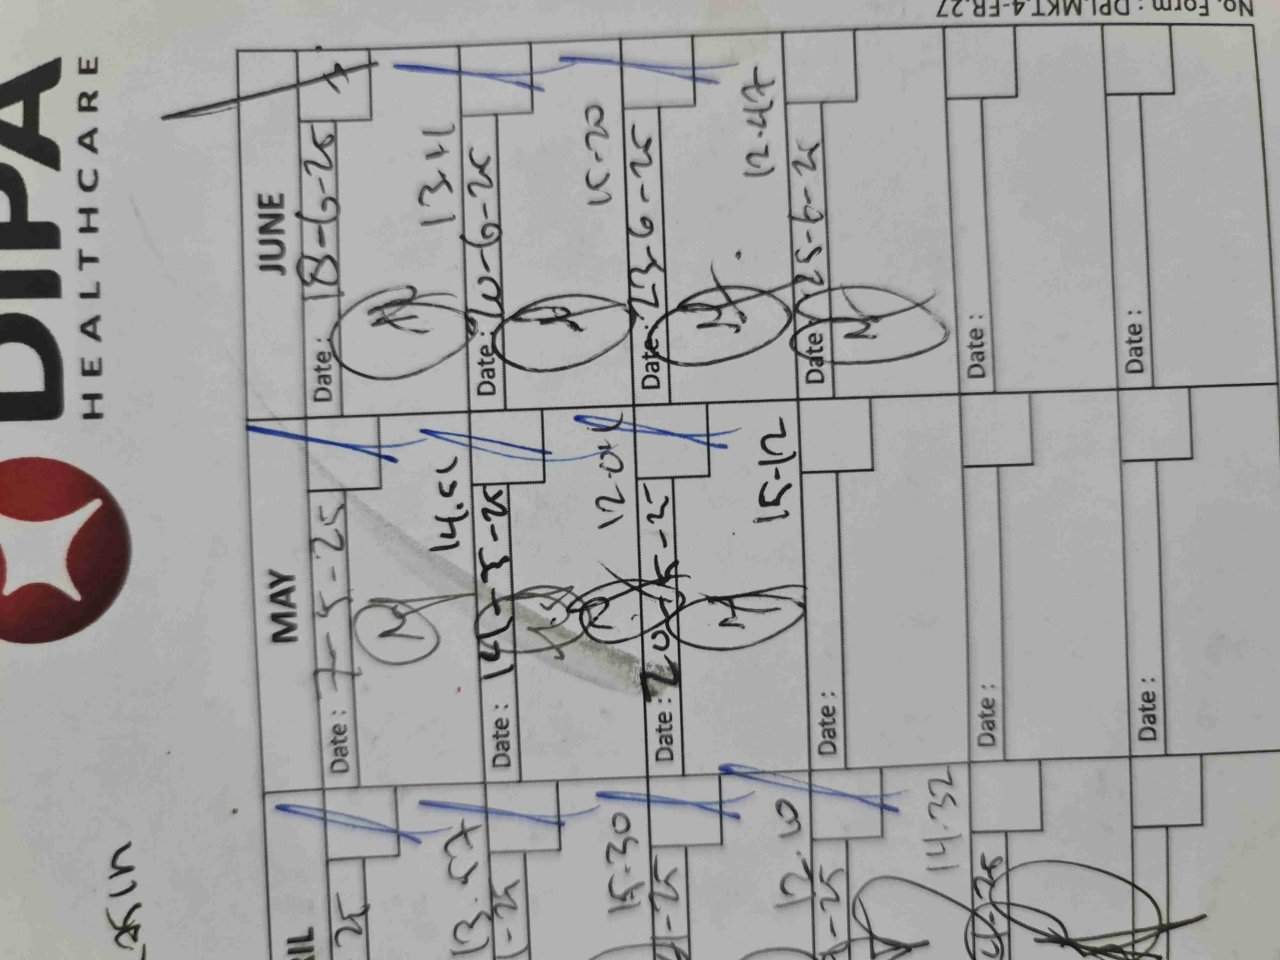 No. Form : DPI.MKT.4-FR.27
DIPA
HEALTHCARE
MAY
JUNE
25
Date : 7-5-25
Date : 18-6-25
13.57
14.51
13.11
-25
Date : 14-5-25
Date : 20-6-25
15.30
12.01
15-20
-25
Date : 20-5-25
Date : 23-6-25
12.10
15-12
12.47
-25
Date :
Date : 25-6-25
14.32
-25
Date :
Date :
Date :
Date :